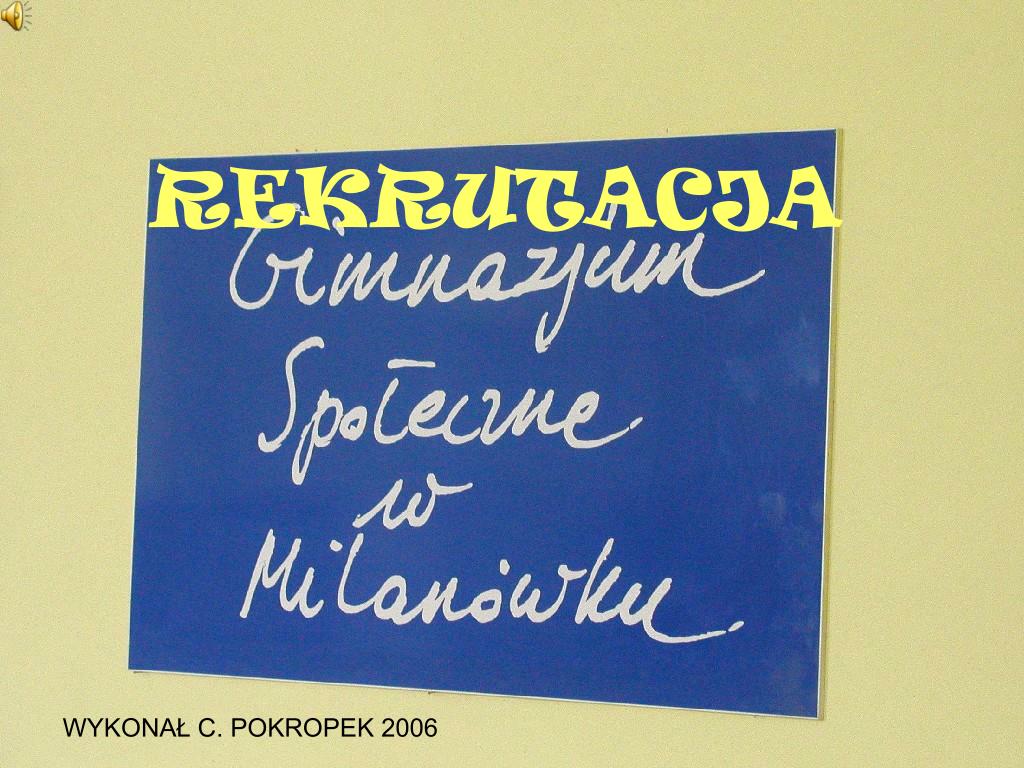 REKRUTACJA
Gimnazjum
Społeczne
w
Milanówku
WYKONAŁ C. POKROPEK 2006